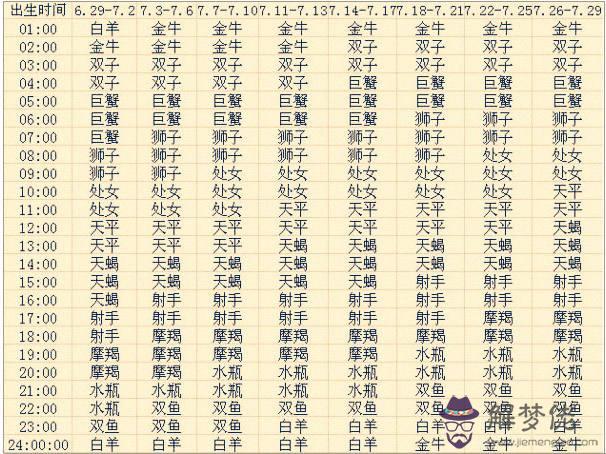 出生时间 6.29-7.2 7.3-7.6 7.7-7.10 7.11-7.13 7.14-7.17 7.18-7.21 7.22-7.25 7.26-7.29
01:00 白羊 金牛 金牛 金牛 金牛 金牛 金牛 金牛
02:00 金牛 金牛 金牛 金牛 双子 双子 双子 双子
03:00 双子 双子 双子 双子 双子 双子 双子 双子
04:00 双子 双子 双子 双子 巨蟹 巨蟹 巨蟹 巨蟹
05:00 巨蟹 巨蟹 巨蟹 巨蟹 巨蟹 巨蟹 巨蟹 巨蟹
06:00 巨蟹 巨蟹 巨蟹 巨蟹 巨蟹 狮子 狮子 狮子
07:00 巨蟹 狮子 狮子 狮子 狮子 狮子 狮子 狮子
08:00 狮子 狮子 狮子 狮子 狮子 狮子 处女 处女
09:00 狮子 狮子 处女 处女 处女 处女 处女 处女
10:00 处女 处女 处女 处女 处女 处女 处女 天平
11:00 处女 处女 处女 天平 天平 天平 天平 天平
12:00 天平 天平 天平 天平 天平 天平 天平 天蝎
13:00 天平 天平 天平 天蝎 天蝎 天蝎 天蝎 天蝎
14:00 天蝎 天蝎 天蝎 天蝎 天蝎 天蝎 天蝎 天蝎
15:00 天蝎 天蝎 天蝎 天蝎 天蝎 射手 射手 射手
16:00 天蝎 射手 射手 射手 射手 射手 射手 射手
17:00 射手 射手 射手 射手 射手 射手 摩羯 摩羯
18:00 射手 摩羯 摩羯 摩羯 摩羯 摩羯 摩羯 摩羯
19:00 摩羯 摩羯 摩羯 摩羯 摩羯 水瓶 水瓶 水瓶
20:00 摩羯 摩羯 水瓶 水瓶 水瓶 水瓶 水瓶 水瓶
21:00 水瓶 水瓶 水瓶 水瓶 水瓶 双鱼 双鱼 双鱼
22:00 水瓶 双鱼 双鱼 双鱼 双鱼 双鱼
23:00 双鱼 双鱼 双鱼 白羊 白羊 白羊 白羊 白羊
24:00:00 白羊 白羊 白羊 白羊 白羊 金牛 金牛 金牛
解梦佬